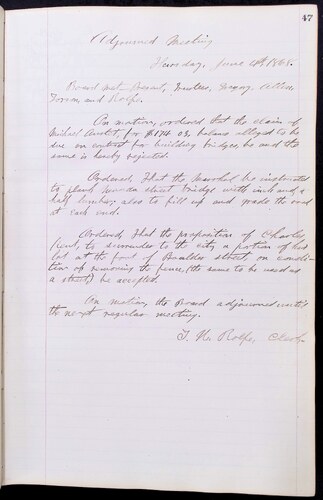 47
Adjourned Meeting
Thursday, June 4th 1868.
Board met. Present, Trustees, Gregory, Allen,
and Rolfe.
On motion, ordered that the claim of
Michael for $174.03, balance alleged to be
due on contract for building bridges, be and the
same is hereby rejected.
Ordered, That the Marshal be instructed
to plank street bridge with inch and a
half lumber, also to fill up and grade the road
at each end.
Ordered, That the proposition of Charles
Kent, to surrender to the city a portion of his
lot at the foot of Boulder street, on condi-
tion of removing the fence, (the same to be used as
a street) be accepted.
On motion, the Board adjourned until
the next regular meeting.
Rolfe, Clerk